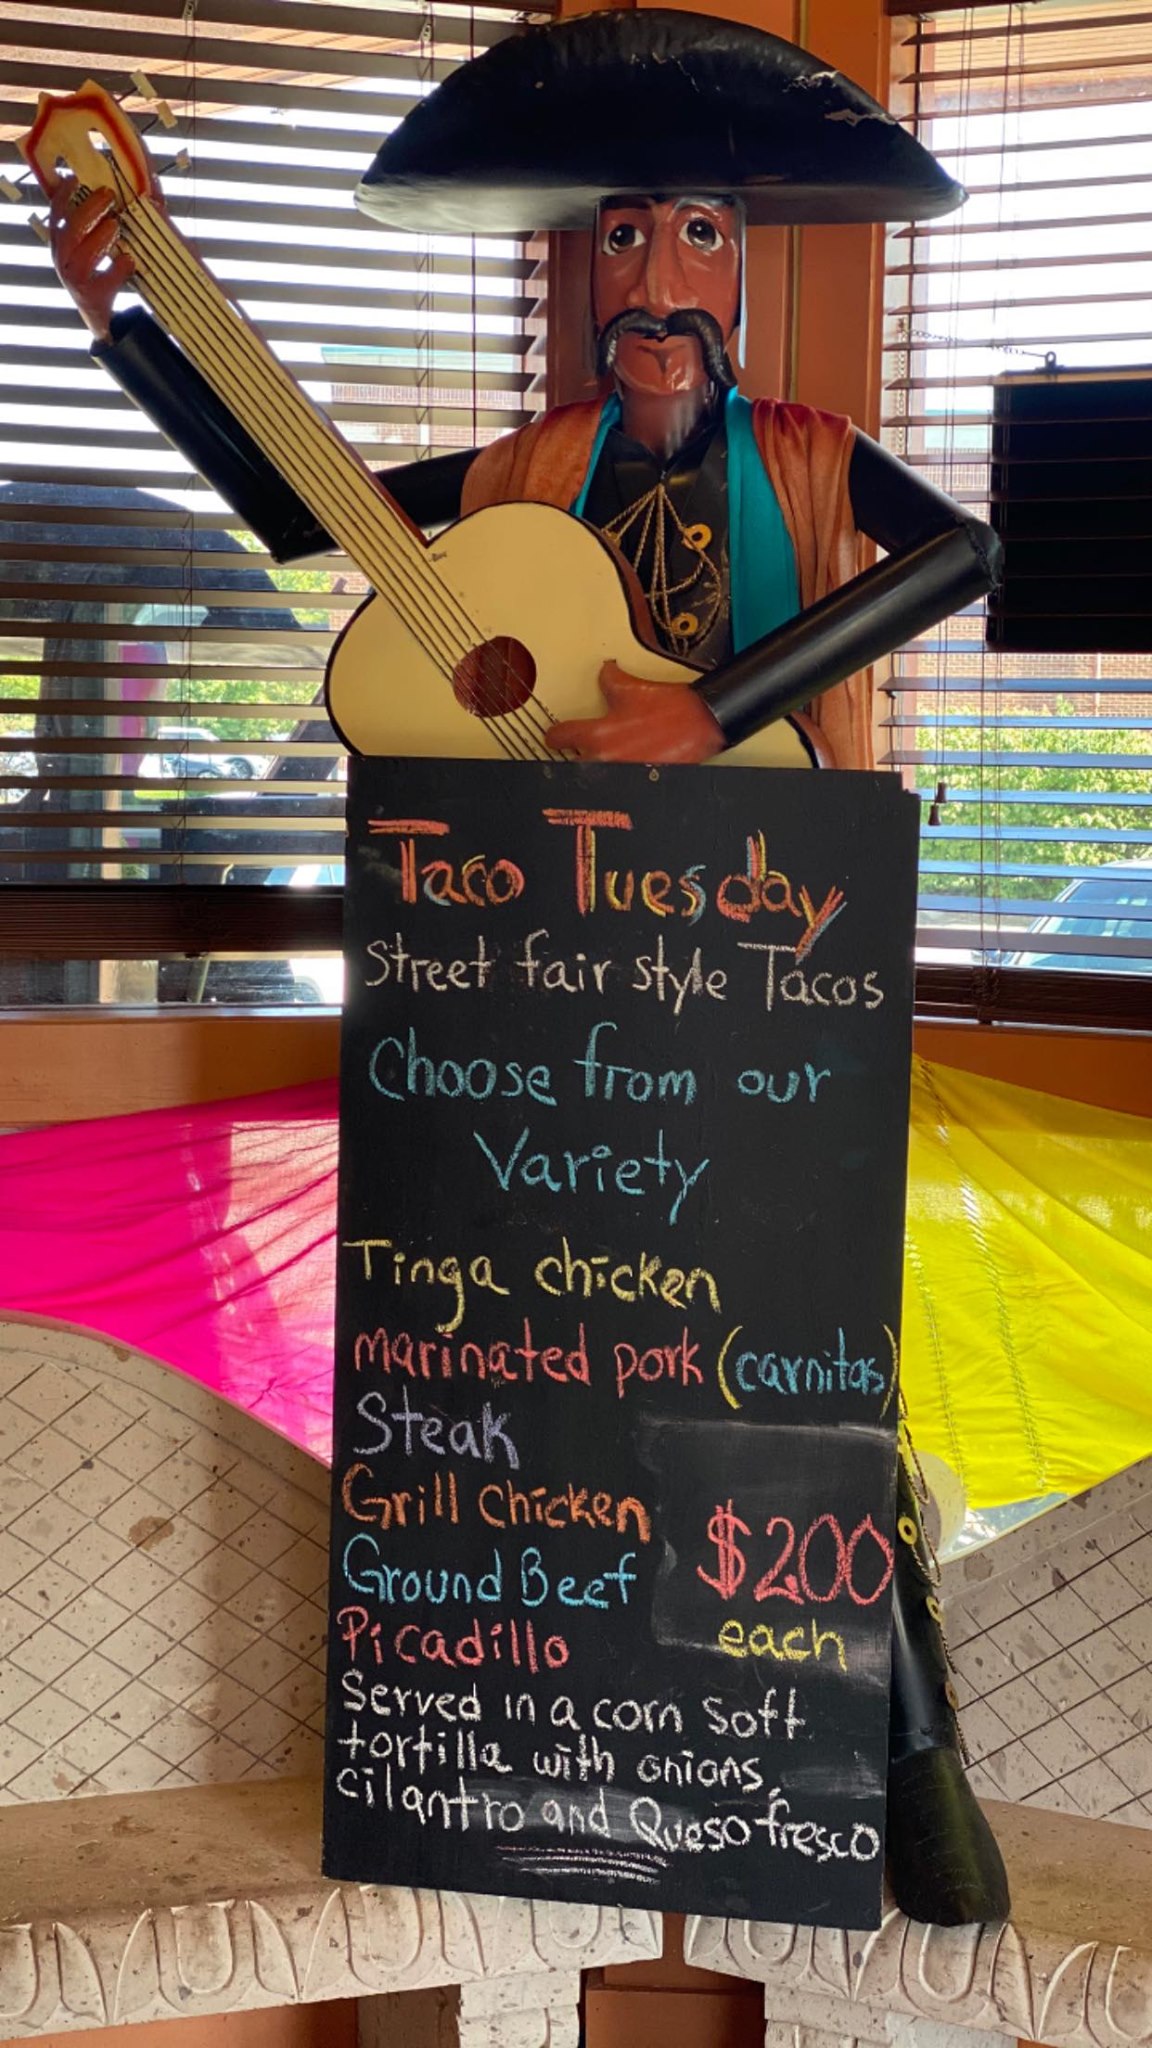 Taco Tuesday
Street fair style Tacos
Choose from our
Variety
Tinga chicken
marinated pork (carnitas)
Steak
Grill chicken
Ground Beef
Picadillo
$2.00
each
Served in a corn soft
tortilla with onions,
cilantro and Queso fresco